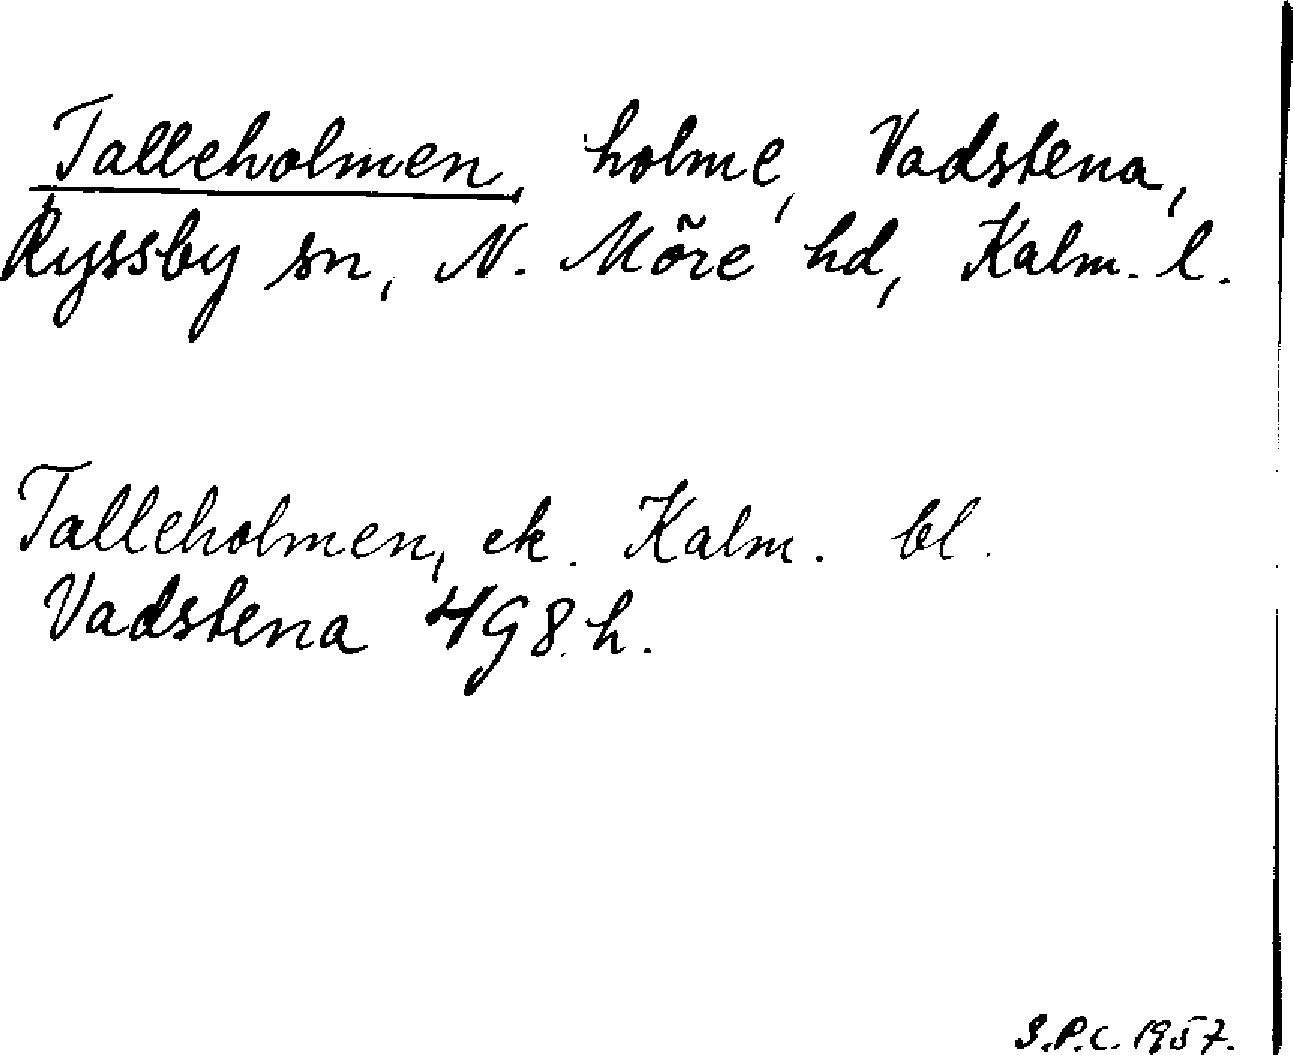 Talleholmen, holme, Vadstena,
Ryssby sn, N. Möre hd, Kalm. l.
Talleholmen, ek. Kalm. bl.
Vadstena 498 h.
S.P.C. 1957.